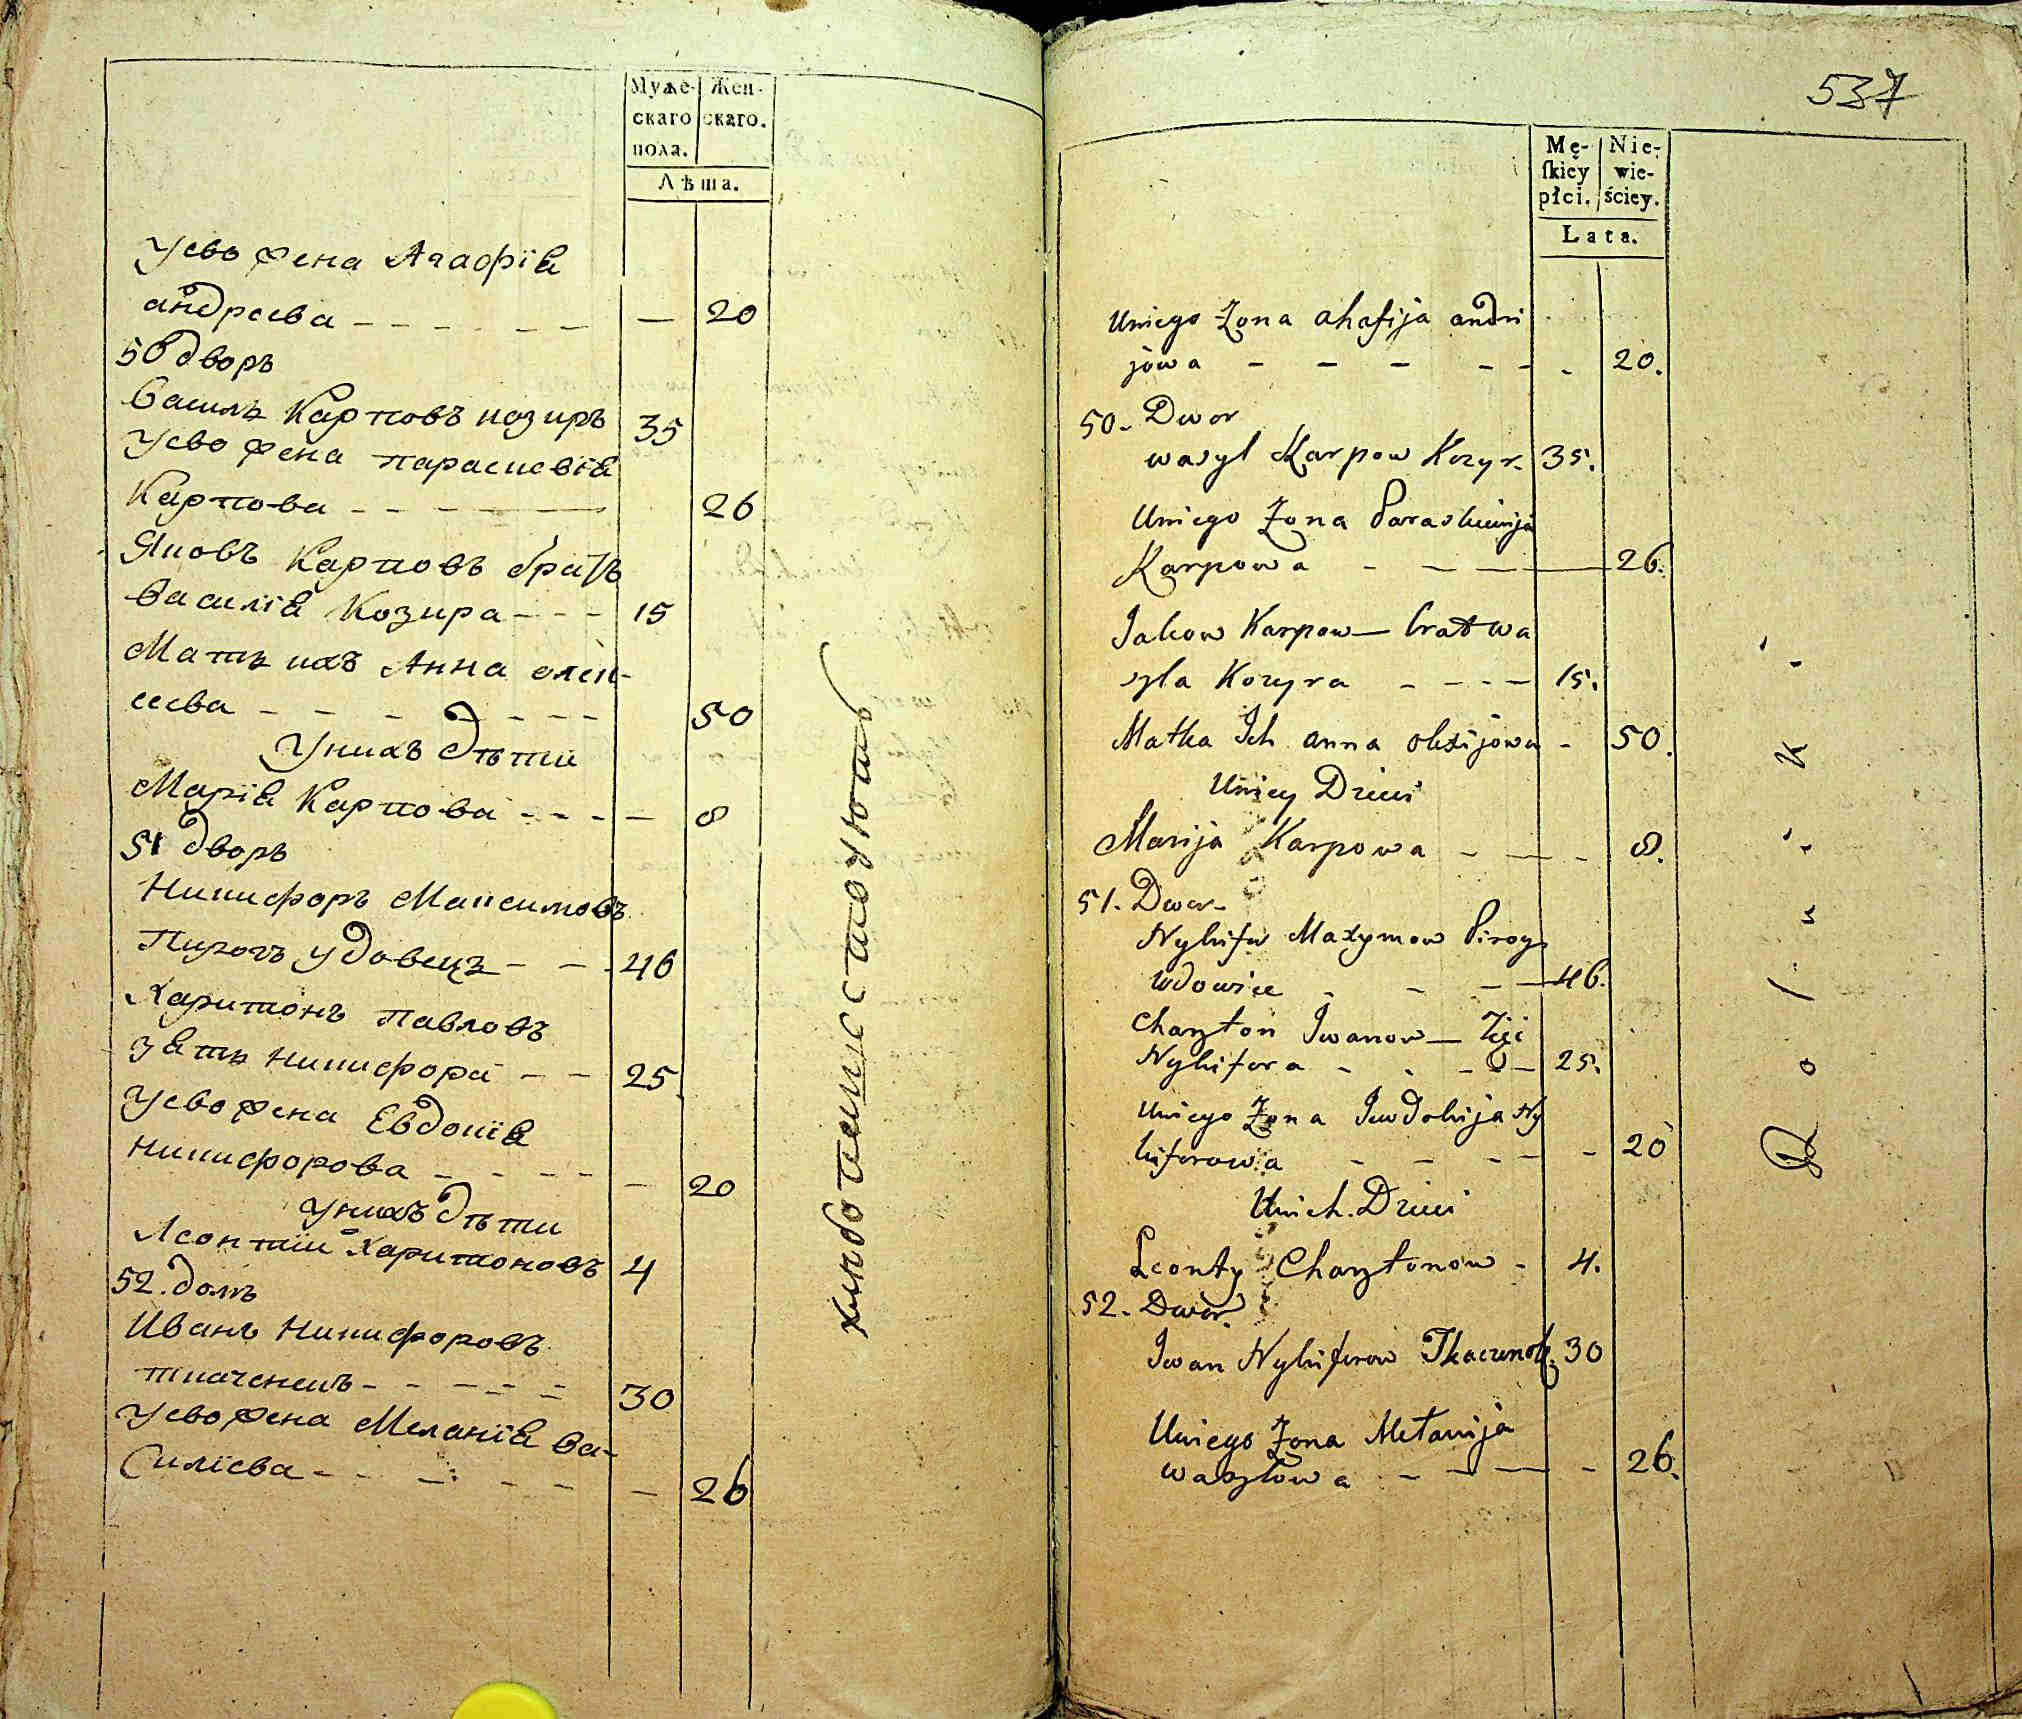 Муже-
скаго
пола.
Жен-
скаго.
Лѣта.
Уево жена Агафія
андреева - - - - - - — 20
50 дворъ
Василь Карповъ козиръ 35
Уево жена параскевія
Карпова - - - - - 26
Яковъ Карповъ братъ
василія Козира - - - 15
Мать ихъ Анна олек-
сеева - - - - - - - 50
Унихъ дѣти
Марія Карпова - - - — 8
51 дворъ
Никифоръ Максимовъ
Пирогъ удовецъ - - - 46
Харитонъ Павловъ
зять никифора - - 25
Уево жена Евдокія
никифорова - - - - — 20
Унихъ дѣти
Леонтіи Харитоновъ 4
52. домъ
Иванъ Никифоровъ
ткаченекъ - - - - - 30
Уево жена Меланія ва-
силіева - - - - - - — 26
хлюботешествуютъ
537
Mę-
skiey
płci.
Nie-
wie-
ściey.
Lata.
Uniego Żona ahafija andri
jowa - - - - - - 20.
50. Dwor
wasyl Karpow Kozyr. 35.
Uniego Żona Paraskiewija
Karpowa - - - — 26.
Jakow Karpow — brat wa
syla Kozyra - - - - 15.
Matka Ich anna olexijowa - 50.
Unich Dzieci
Marija Karpowa - — - 8.
51. Dwor.
Nykifor Maxymow Pirog
wdowiec - - - — 46.
Charyton Iwanow — Zięć
Nykifora - - - - — 25.
Uniego Żona Iewdokija Ny
kiforowa - - - - - 20
Unich. Dzieci
Leonty Charytonow - 4.
52. Dwor.
Iwan Nykiforow Tkaczenok. 30
Uniego Żona Mełanija
wasylowa - - — - 26.